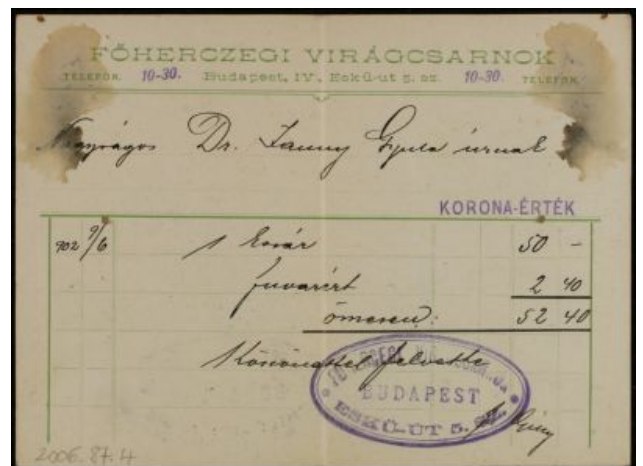 FŐHERCZEGI VIRÁGCSARNOK
TELEFÓN. 10-30. Budapest, IV., Eskü-ut 5. sz. 10-30. TELEFÓN.
Nagyságos Dr. Janny Gyula úrnak
KORONA-ÉRTÉK
902 9/6 1 kosár 50 -
fuvarért 2 40
összesen: 52 40
Köszönettel felvette
BUDAPEST
ESKÜ-ÚT 5. SZ.
2006.87.4